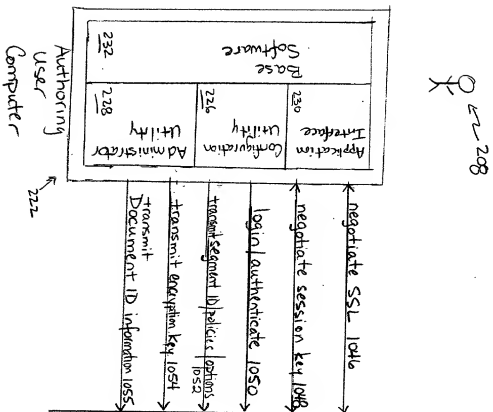 208
Authoring
User
Computer
222
232
Base
Software
228
Administrator
Utility
226
Configuration
Utility
230
Application
Interface
negotiate SSL 1046
negotiate session key 1048
login/authenticate 1050
transmit segment ID/policies/options
1052
transmit encryption key 1054
transmit
Document ID information 1055